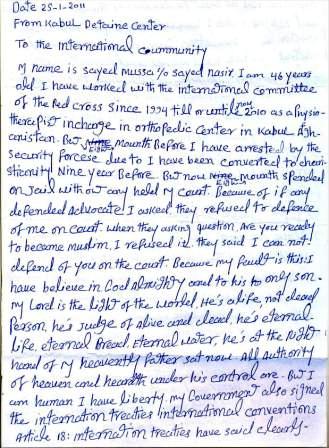 Date 25-1-2011
From Kabul Detaine Center
To the International community
My name is sayed mussa s/o sayed nasir. I am 46 years
old I have worked with the international committee
of the Red cross Since 1994 till or until now 2010 as a Physio-
therapist incharge in orthoPedic Center in Kabul Afgh-
canistan. But Eight mounth Before I have arrested by the
Security Forcese due to I have been converted to chari-
sticmity Nine year Before But now Eight mounth spended
on Jail with out any held my Court. Because of if any
defended Advocate I asked they refused to defence
of me on Court. when they asking question Are you ready
to became muslim, I refused it. they said I can not
defend of you on the court. Because my fault is this: I
have believe in God Almighty and to his to only son.
my Lord is the light of the world. He's a life, not dead
Person, he's Judge of Alive and dead, he's eternal-
life, eternal Bread, Eternal water, he's at the Right
hand of my heavently father sat now All authority
of heaven and hearth under his control are. But I
am human I have liberty my Government also signed
the internation treaties international conventions
Article 18: internation treaties have said clearly-